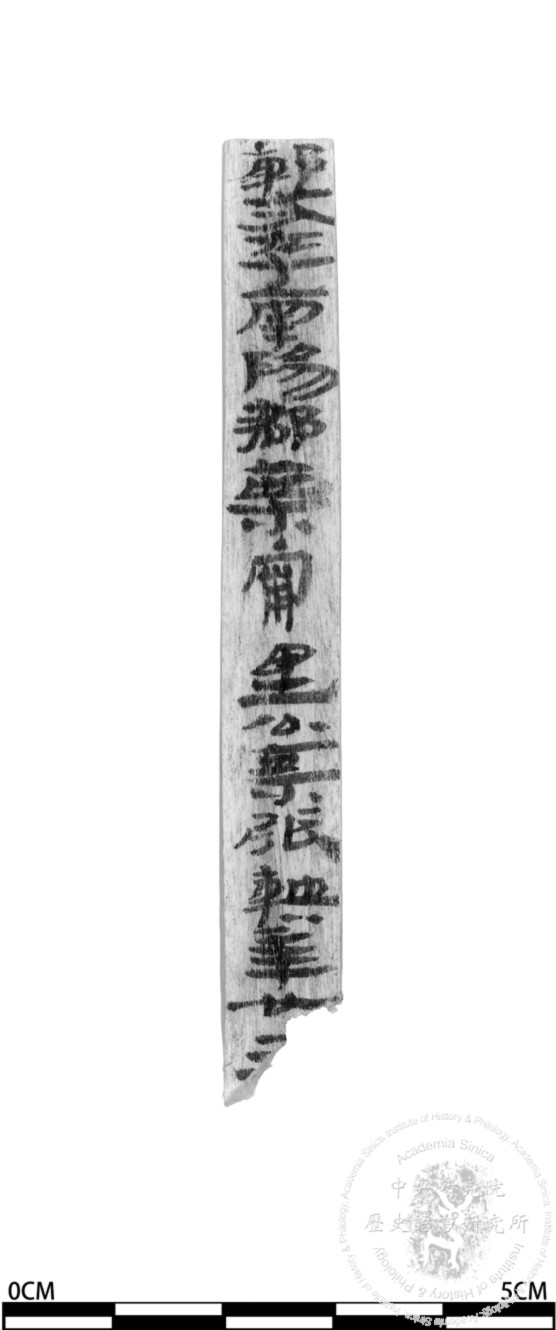 卒南陽郡葉甯里公乘張鞅年廿三
Institute of History & Philology, Academia Sinica
Academia Sinica
中央研究院
歷史語言研究所
Institute of History & Philology
0CM 5CM